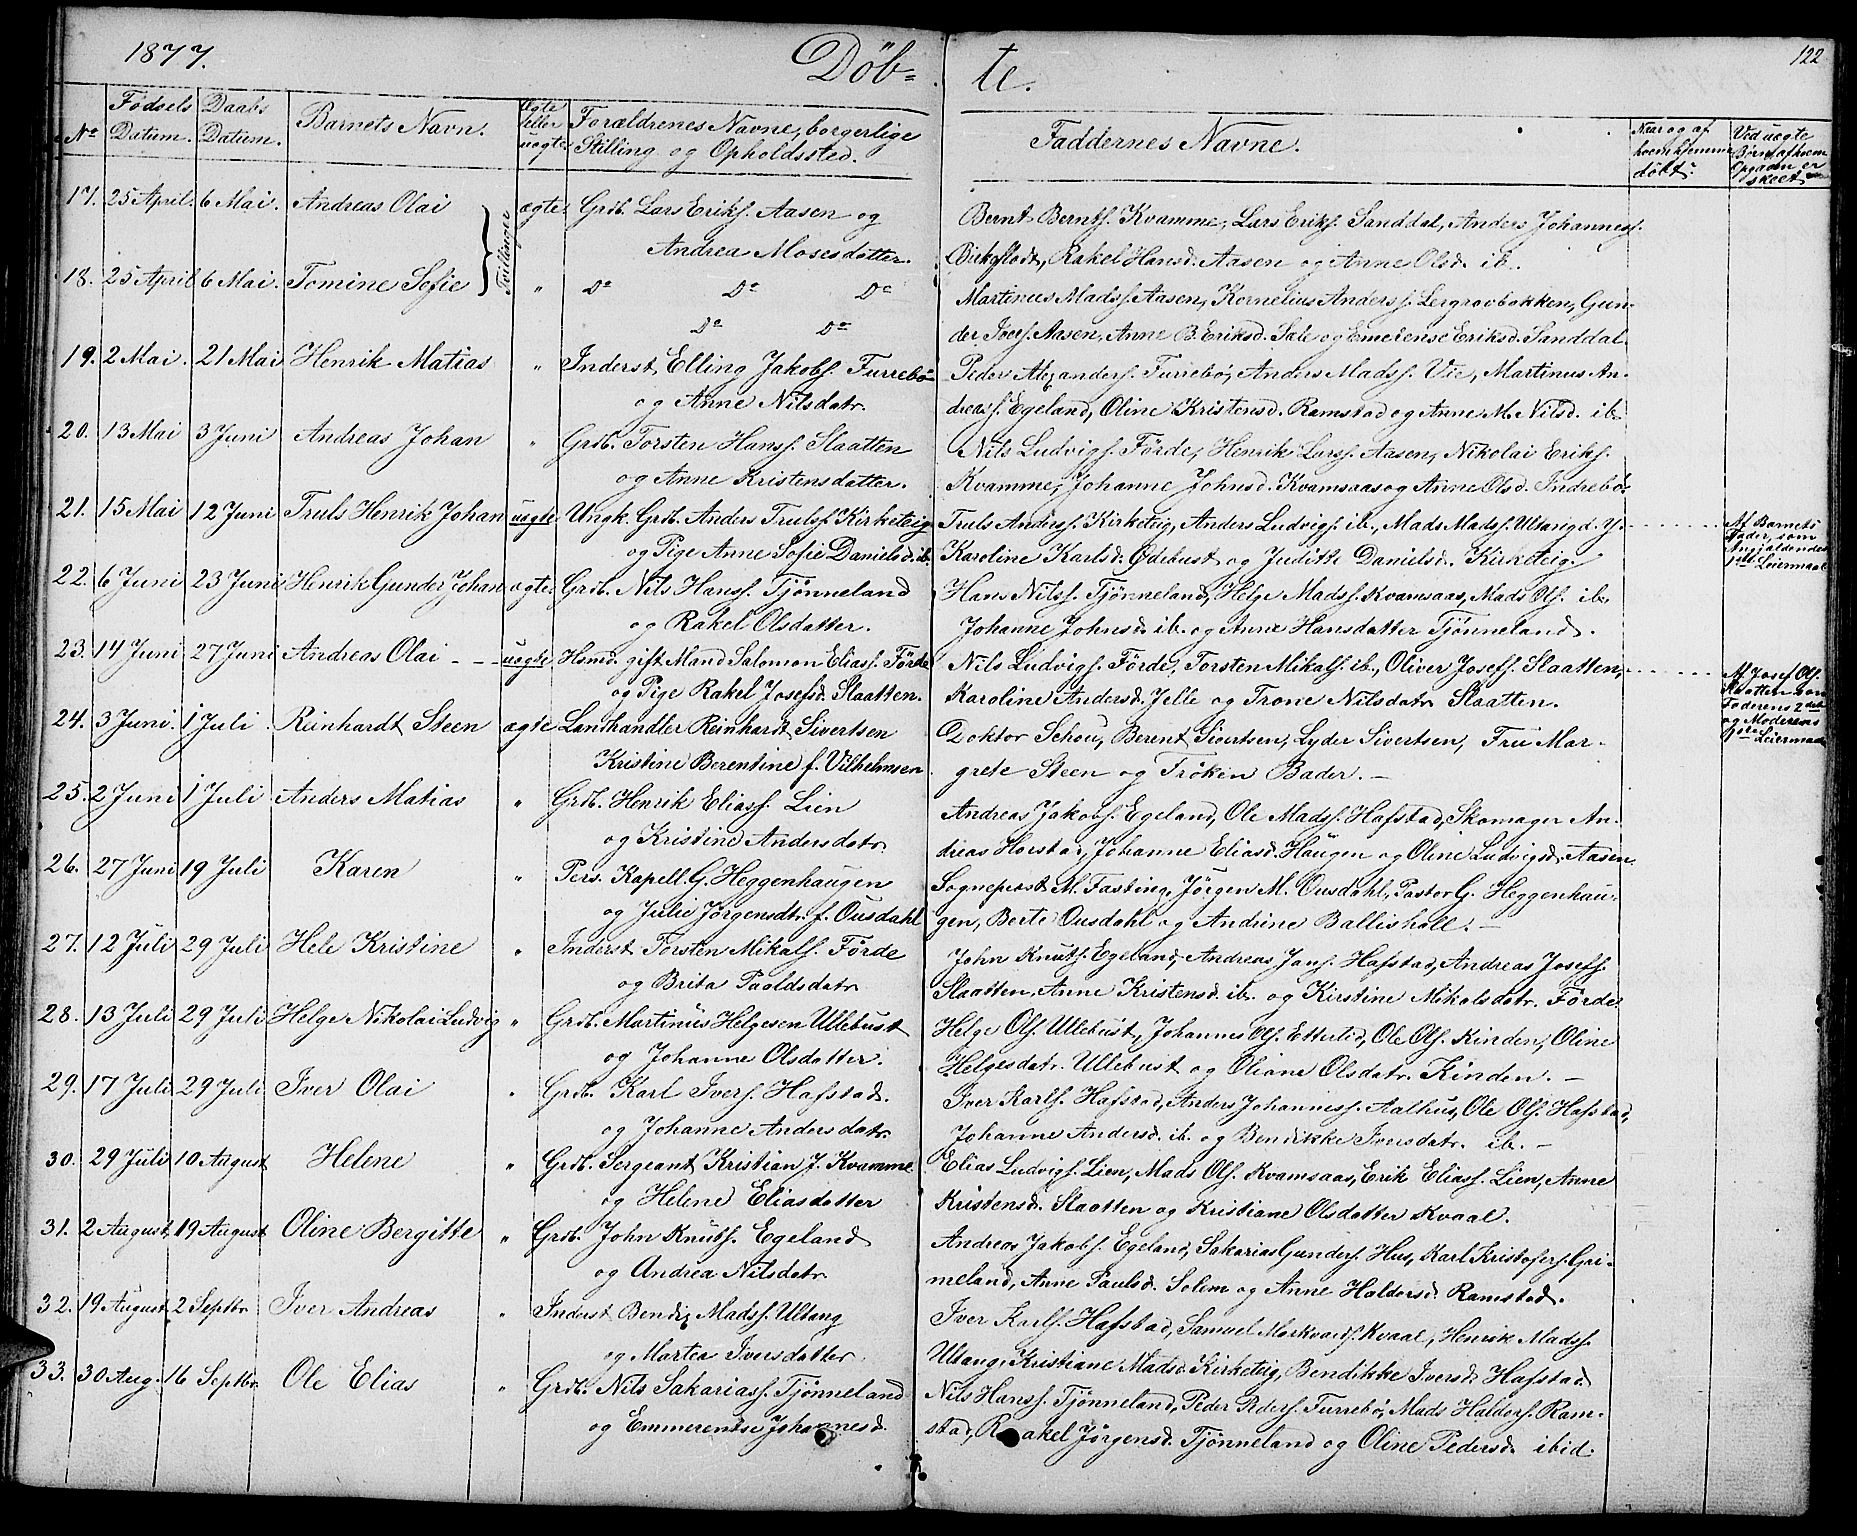 1877. Döb= te. 122
No Fødsels Datum. Daabs Datum. Barnets Navn. Ægte eller uægte Forældrenes Navne, borgerlige Stilling og Opholdssted. Faddernes Navne. Naar og af hvem hjemme døbt? Ved uægte Børn, af hvem Opgaven er skeet
17. 25 April. 6 Mai. Andreas Olai Tvillinger ægte. Grdb. Lars Eriks. Aasen og Bernt Bernts. Kvamme, Lars Eriks. Sanddal, Anders Johanness.
Andrea Mosesdatter. Birkeflodt, Rakel Hansd. Aasen og Anne Olsd. ib.
18. 25 April 6 Mai. Tomine Sefie " Do Do Do Martinus Madss. Aasen, Kornelius Anderss. Lergrovbakken, Gun-
Do Do der Ives. Aasen, Anne B. Eriksd. Sale og Emerense Eriksd. Sanddal.
19. 2 Mai. 21 Mai Henrik Matias " Inderst, Elling Jakobs. Furrebö Peder Alexanders. Furrebö, Anders Madss. Vie, Martinus An-
og Anne Nilsdatr. dreass. Egeland, Oline Kristensd. Ramstad og Anne M. Nilsd. ib.
20. 13 Mai 3 Juni Andreas Johan " Grdb. Torsten Hanss. Slaatten Nils Ludvigs. Förde, Henrik Larss. Aasen, Nikolai Eriks.
og Anne Kristensdatter. Kvamme, Johanne Johnsd. Kvamsaas og Anne Olsd. Indrebö
21. 15 Mai 12 Juni Truls Henrik Johan uægte Ungk. Grdb. Anders Trulss. Kirketeig Truls Anderss. Kirketeig, Anders Ludvigs. ib., Mads Madss. Ultang d. y. Af Barnets
og Pige Anne Sofie Danielsd. ib. Karoline Karlsd. Ødebust og Judithe Danielsd. Kirketeig. Fader, som Angjældendes 1ste Leiermaal
22. 6 Juni 23 Juni Henrik Gunder Johan ægte. Grdb. Nils Hanss. Tjønneland Hans Nilss. Tjønneland, Helge Madss. Kvamsaas, Mads Ols. ib.
og Rakel Olsdatter. Johanne Johnsd. ib. og Anne Hansdatter Tjønneland.
23. 14 Juni 27 Juni Andreas Olai uægte Hsmd. gift Mand Salomon Eliass. Förde Nils Ludvigs. Förde, Torsten Mikals. ib., Oliver Josefs. Slaatten, Af Josef Ols.
og Pige Rakel Josefsd. Slaatten. Karoline Andersd. Jelle og Trone Nilsdatr. Slaatten. Slaatten som Faderens 2det og Moderens 1ste Leiermaal
24. 3 Juni. 1 Juli. Reinhardt Steen ægte Landhandler Reinhardt Sivertsen Doktor Schou, Berent Sivertsen, Lyder Sivertsen, Fru Mar-
Kristine Berentine f. Vilhelmsen grete Steen og Fröken Bader. –
25. 2 Juni 1 Juli Anders Matias " Grdb. Henrik Eliass. Lien Andreas Jakobs. Egeland, Ole Madss. Hafstad, Skomager An-
og Kristine Andersdatr. dreas Horstad, Johanne Eliasd. Haugen og Oline Ludvigsd. Aasen.
26. 27 Juni 19 Juli Karen " Pers. Kapell. G. Heggenhaugen Sogneprest M. Fasting, Jörgen M. Ousdahl, Pastor G. Heggenhau-
og Julie Jørgensdtr. f. Ousdahl gen, Berte Ousdahl og Andrine Ballishall. –
27. 12 Juli 29 Juli Hele Kristine " Inderst Torsten Mikals. Förde John Knuts. Egeland, Andreas Jans. Hafstad, Andreas Josefs.
og Brita Paalsdatr. Slaatten, Anne Kristensd. ib. og Kirstine Mikalsdatr. Förde
28. 13 Juli 29 Juli Helge Nikolai Ludvig " Grdb. Martinus Helgesen Ullebust Helge Ols. Ullebust, Johannes Ols. Etterlid, Ole Ols. Kinden, Oline
og Johanne Olsdatter. Helgesdatr. Ullebust og Oliane Olsdatr. Kinden. –
29. 17 Juli 29 Juli Iver Olai " Grdb. Karl Ivers. Hafstad. Iver Karls. Hafstad, Anders Johanness. Aalhus, Ole Ols. Hafstad,
og Johanne Andersdatr. Johanne Andersd. ib. og Bendikke Iversdatr. ib. –
30. 29 Juli 10 August Helene " Grdb. Sergeant Kristian J. Kvamme Elias Ludvigs. Lien, Mads Ols. Kvamsaas, Erik Eliass. Lien, Anne
og Helene Eliasdatter Kristensd. Slaatten og Kristiane Olsdatter Kvaal.
31. 2 August 19 August Oline Bergitte " Grdb. John Knuts. Egeland Andreas Jakobs. Egeland, Sakarias Gunders. Hus, Karl Kristofers. Gri-
og Andrea Nilsdatr. meland, Anne Paulsd. Solem og Anne Haldorsd. Ramstad.
32. 19 August 2 Septbr Iver Andreas " Inderst Bendix Madss. Ultang Iver Karls. Hafstad, Samuel Markvards. Kvaal, Henrik Madss.
og Martea Iversdatter. Ultang, Kristiane Madsd. Kirketeig, Bendikke Iversd. Hafstad.
33. 30 Aug. 16 Septbr Ole Elias " Grdb. Nils Sakariass. Tjønneland Nils Hanss. Tjønneland, Peder Peders. Furrebö, Mads Haldors. Ram-
og Emmerentse Johannesd. stad, Raakel Jørgensd. Tjønneland og Oline Pedersd. ibid.